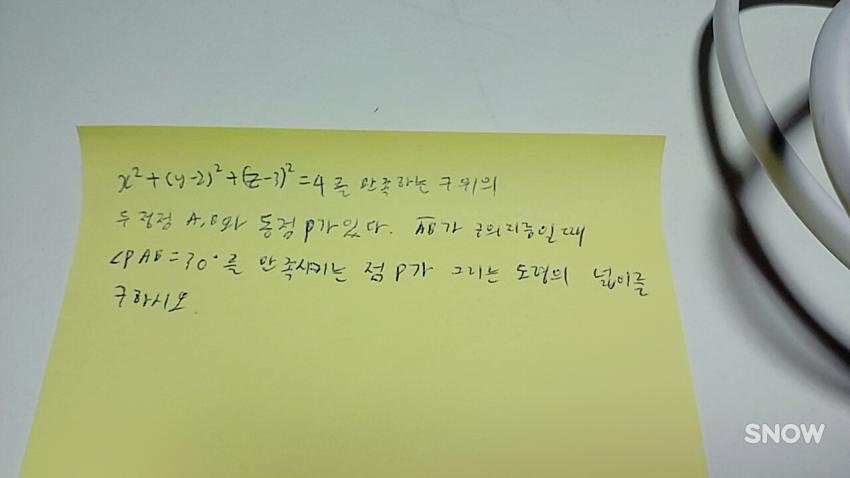 x²+(y-2)²+(z-3)²=4 를 만족하는 구위의
두 정점 A,B와 동점 P가 있다. AB가 구의지름일때
∠PAB=30°를 만족시키는 점 P가 그리는 도형의 넓이를
구하시오.
SNOW